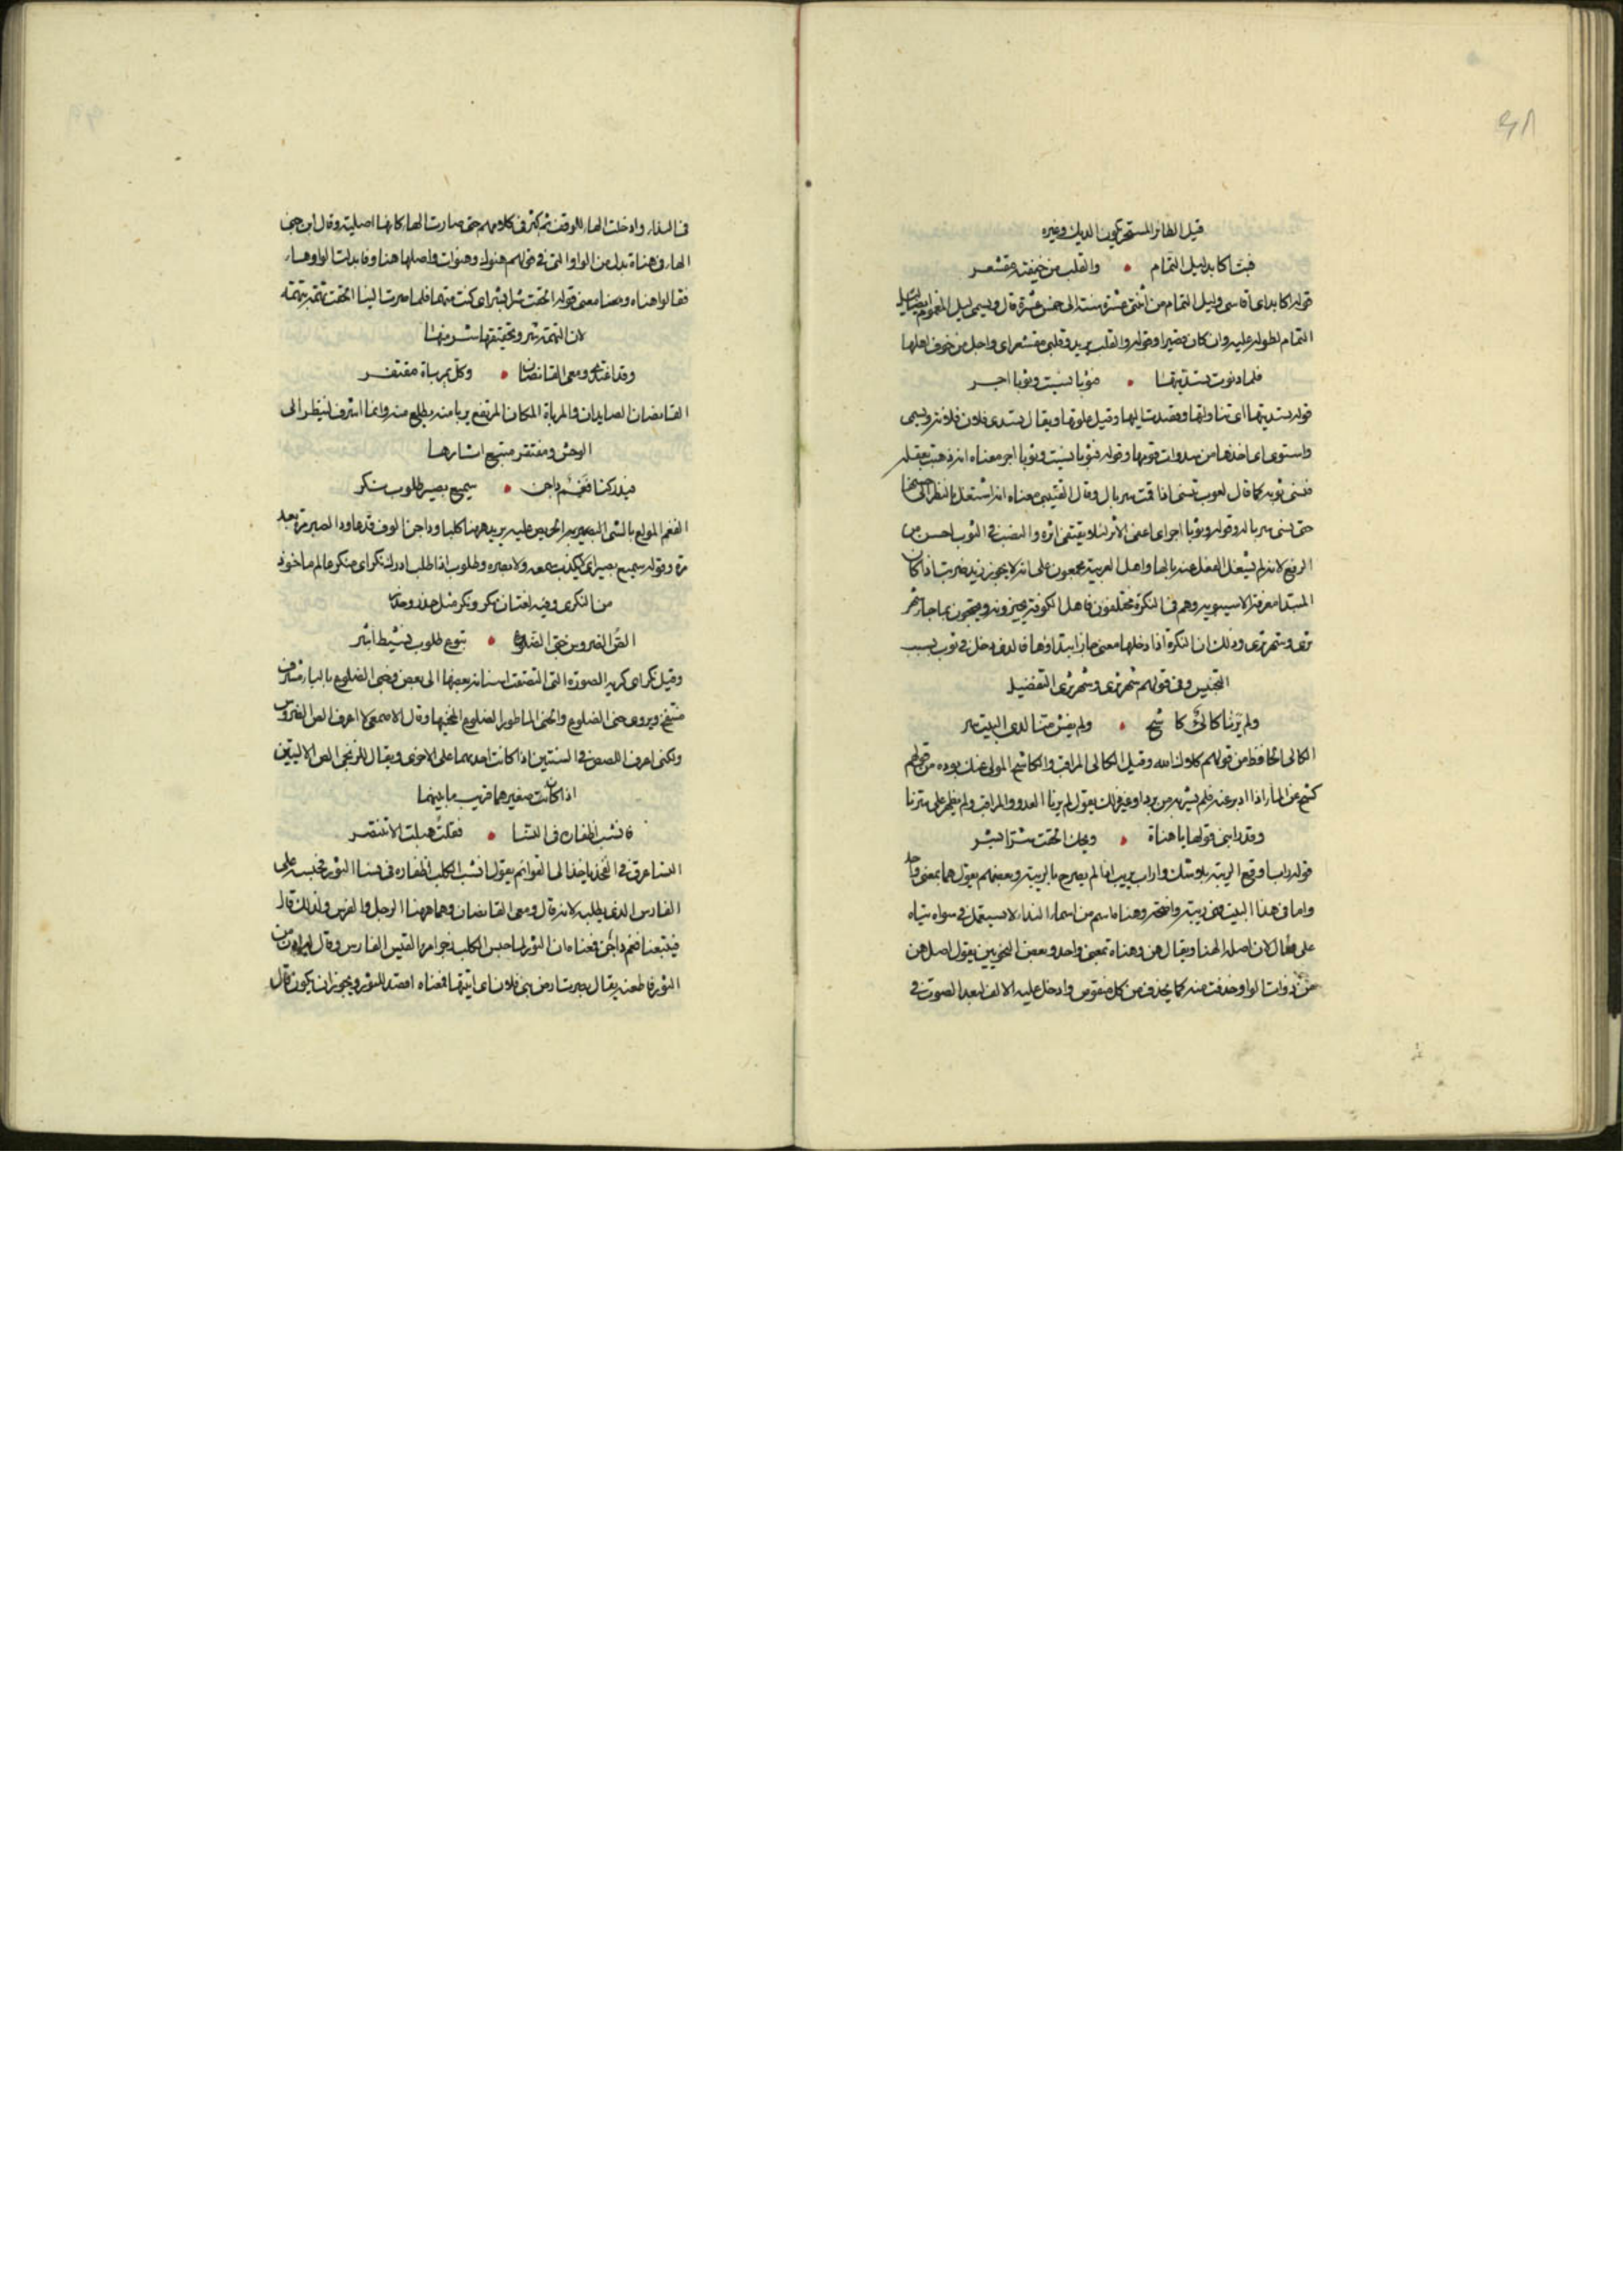 ٩٨
قيل الطائر المستحر يكون الديك وغيره
فبت اكابد ليل التمام والقلب من خيفة مقشعر
قوله اكابد اي اقاسي وليل التمام من اثنتي عشرة ستة الى خمس عشرة قال ويسمى ليل
التمام لطوله عليه وان كان قصيرا وقوله والقلب يريد وقلبي مقشعر اي واجل من خوف اهلها
فلما دنوت تسديتها فثوبا نسيت وثوبا اجر
قوله تسديتها اي تناولتها وقصدت اليها وقيل علوتها ويقال تسدى فلان فلانة وتسمى
واستوى اي اخذها من سدوات قومها وقوله فثوبا نسيت وثوبا اجر معناه انه ذهبت بعقله
فنسى ثوبه كما قال لعوب تنسني اذا قمت سربالي وقال القتيبي معناه انه اشتغل بالنظر الى حسنها
حتى نسي سرباله وقوله وثوبا اجر اي اعفى الاثر لئلا يقتفى اثره والنصب في الثوب احسن من
الرفع لانه لم يشغل الفعل عنه بالها واهل العربية مجمعون على انه لا يجوز زيد ضربت اذا كان
المبتدا معرفة الا سيبويه وهم في النكرة مختلفون فاهل الكوفة يجيزونه ويحتجون بما جا شهر
ترى وشهر ثرى وذلك ان النكرة اذا دخلها معنى جاز ابتداؤها فالذي دخل في ثوب بسبب
التجنيس وفي قولهم شهر ترى وشهر ثرى التفضيل
ولم يرنا كالئ كاشح ولم يفش منا لدى البيت سر
الكالئ الحافظ من قولهم كلاك الله وقيل الكالئ المراقب والكاشح المولي عنك بوده من قولهم
كشح عن الماء اذا ادبر عنه فلم يشربه من برد او غيره لك يقول لم يرنا العدو والمراقب ولم يظهر على سرنا
وقد رابني قولها يا هناه ويحك الحقت شرا بشر
قوله راب اوقع الريبة بلا شك واراب يريب اذا لم يصرح بالريبة وبعضهم يقول هما بمعنى واحد
واما في هذا البيت فهي ريبة واضحة وهناه اسم من اسماء النداء لا يستعمل في سواه
على فعال لان اصله الهنا ويقال هن وهناه بمعنى واحد وبعض النحويين يقول اصل هن
من ذوات الواو حذفت منه كما يحذف من كل منقوص وادخل عليه الالف لبعد الصوت في
في النداء وادخلت الهاء للوقف ثم كثر في كلامهم حتى صارت الهاء كانها اصلية وقال ابن جني
الهاء في هناه بدل من الواو التي في قولهم هنوك وهنوات واصلها هناو فابدلت الواو هاء
فقالوا هناه وهنا معنى قوله الحقت شرا بشر اي كنت متهما فلما صرت الينا الحقت تهمة بتهمة
لان التهمة شر وتحقيقها شر منها
وقد اغتدي ومعي القانصان وكل بمرباة مقتفر
القانصان الصايدان والمرباة المكان المرتفع يربا منه يطلع منه وانما اشرف لينظر الى
الوحش ومقتفر متبع اثارها
فيدركنا فغم داجن سميع بصير طلوب نكر
الفغم المولع بالشي الحريص عليه يريد هاهنا كلبا وداجن الوف قدها ودا الصيد مرة بعد
مرة وقوله سميع بصير اي لا يكذب سمعه ولا بصره وطلوب اذا طلب ادرك نكر اي منكر عالم ماخوذ
من النكرى وفيه لغتان نكر ونكر مثل حذر وحذر
الص الضروس حبي الضلوع تبوع طلوب نشيط اشر
وقيل نكر اي كريه الصورة التي التصقت اسنانه بعضها الى بعض وحبي الضلوع بالباء مشرف
منتفخ ويروى حني الضلوع والحني الماطور الضلوع المحنيها وقال الاصمعي لا اعرف الص الضروس
ولكني اعرف اللصص في السنتين اذا كانت احديهما على الاخرى ويقال للزنجي الص الاليتين
اذا كانت صغيرهما قريب ما بينهما
فانشب اظفاره في النسا فقلت هبلت الا تنتصر
النسا عرق في الفخذ ياخذ الى القوائم يقول انشب الكلب اظفاره في نسا الثور فحبسه على
الفارس الذي يطلبه لانه قال ومعي القانصان وهما هاهنا الرجل والفرس ولذلك قال
فيتبعنا فغم داجن فمعناه ان الثور لما حبس الكلب امرؤ القيس الفارس وقال
الثور فاطعنه يقال نصرت ارض بني فلان اي اتيتها فمعناه اقصد للثور ويجوز ان يكون قال